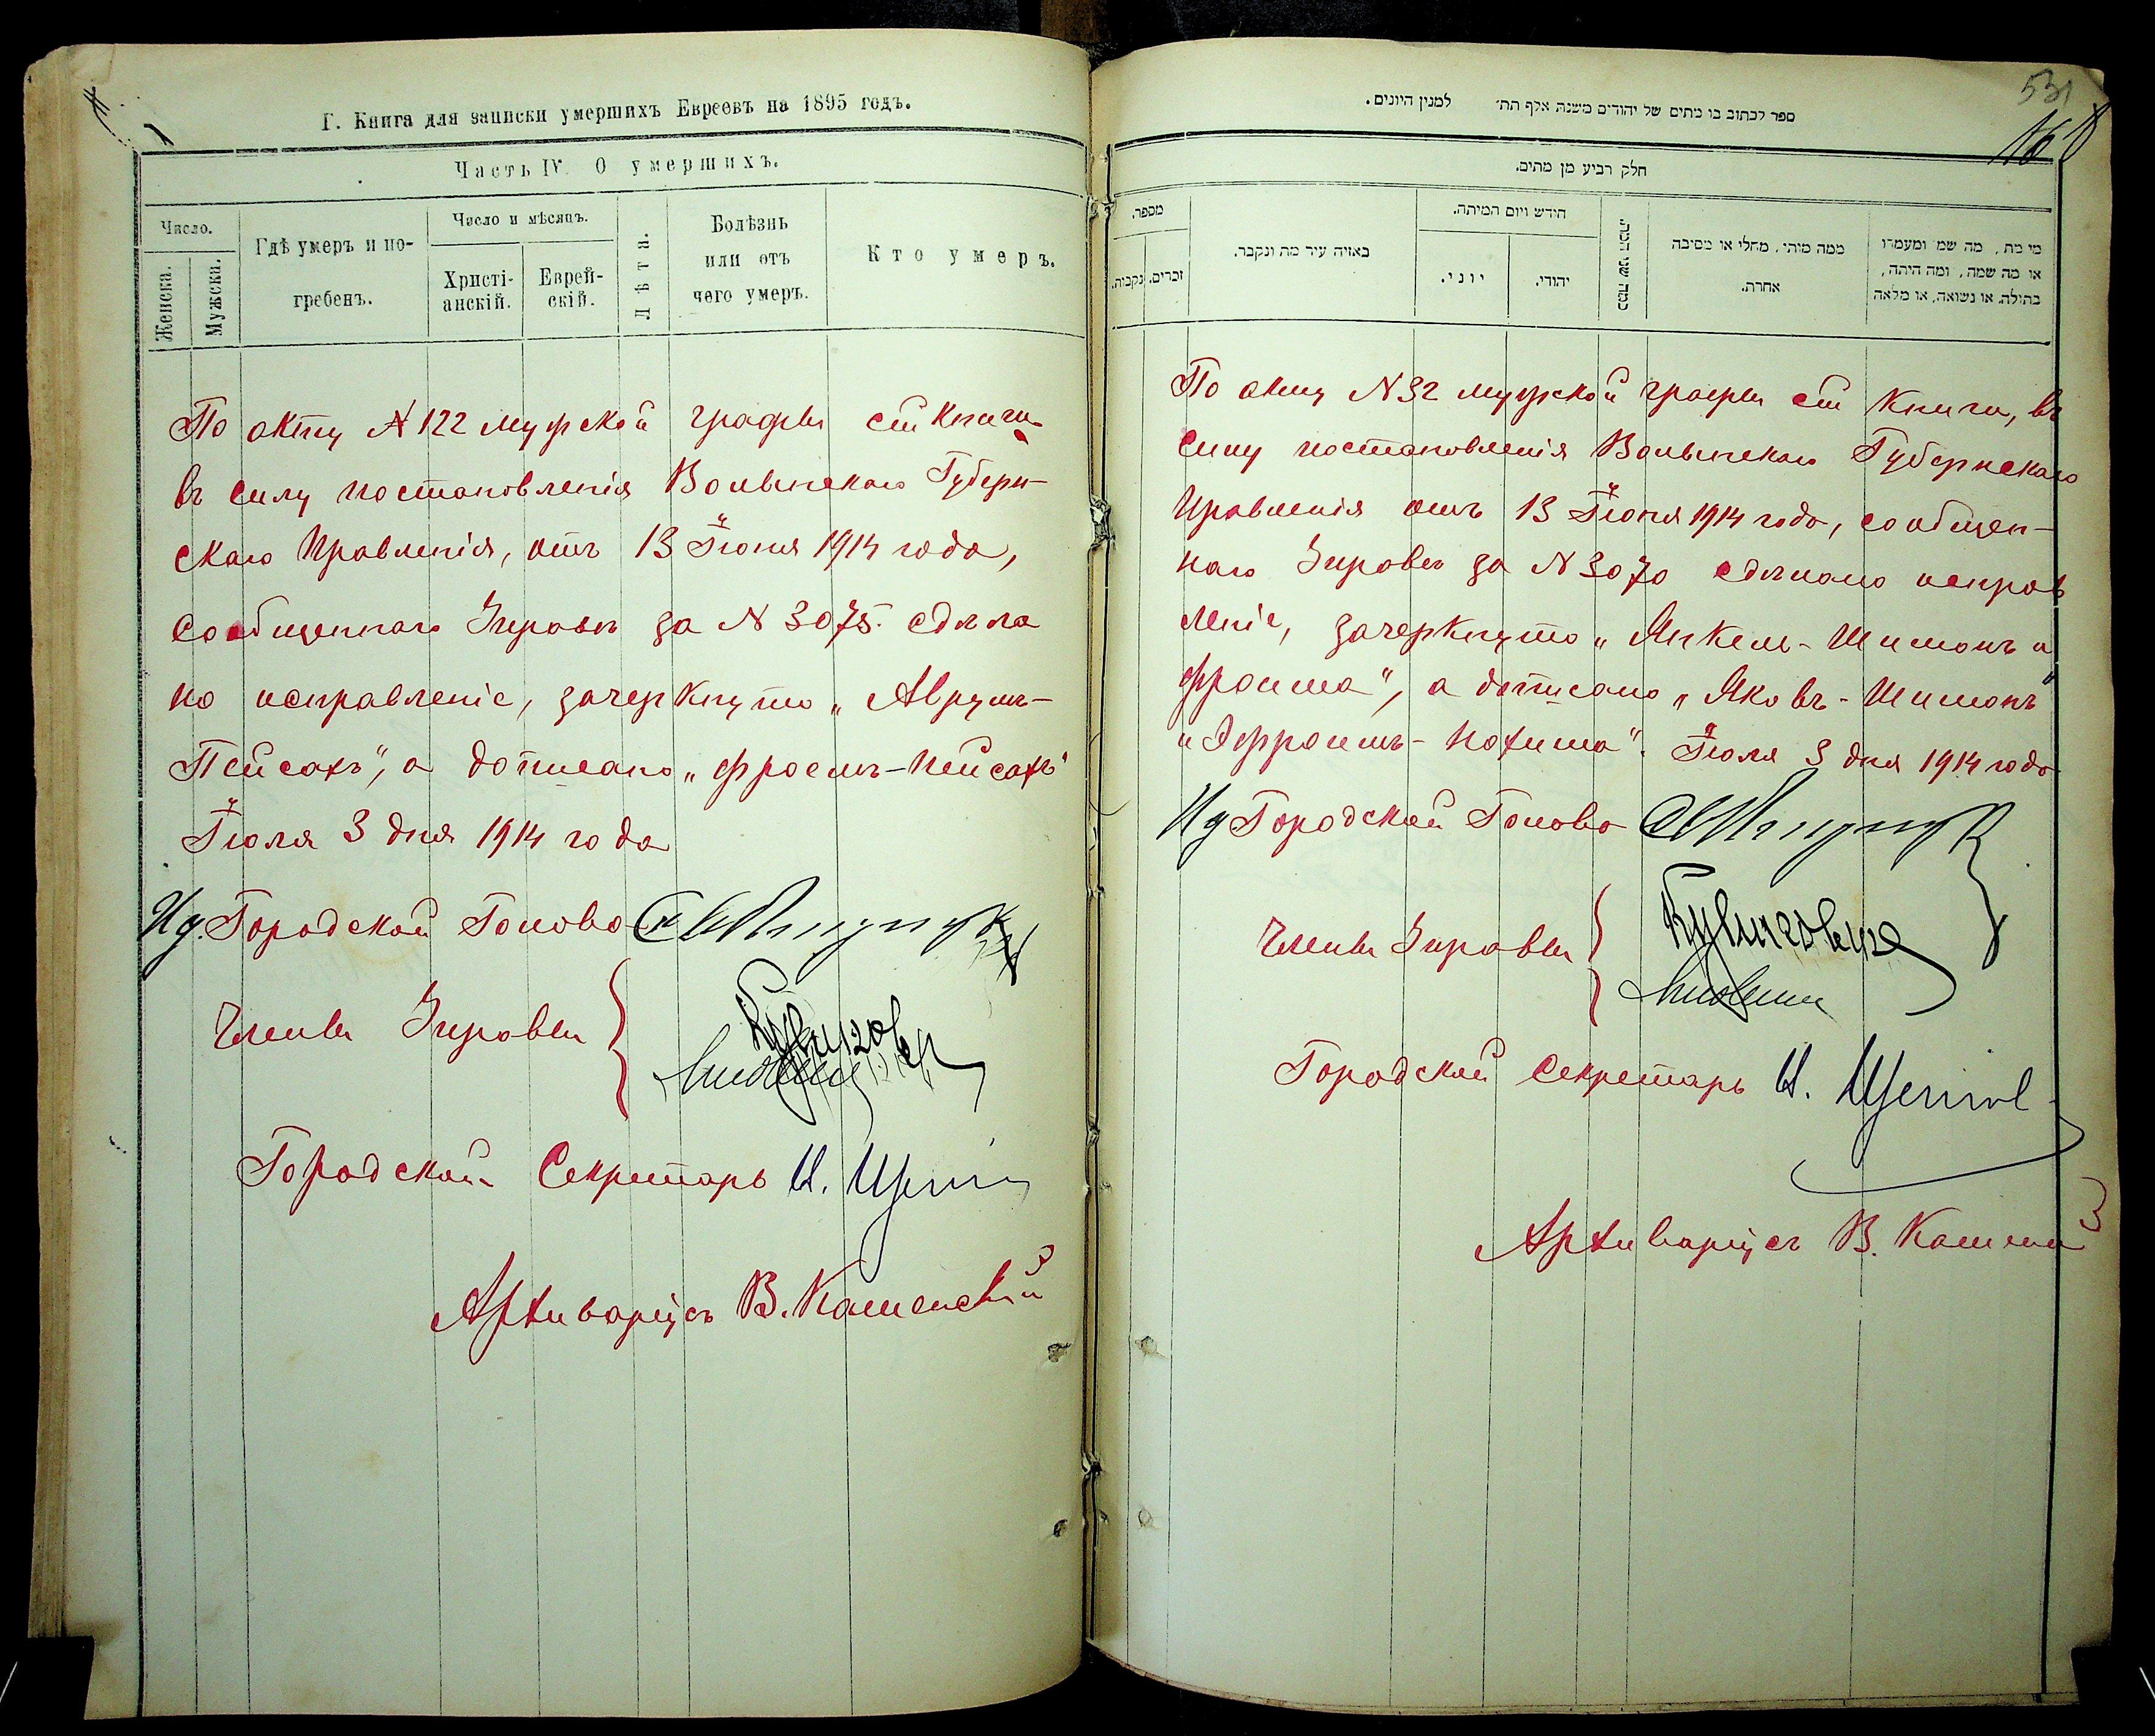 Г. Книга для записки умершихъ Евреевъ на 1895 годъ.
Часть IV. О умершихъ.
Число.
Женска.
Мужска.
Гдѣ умеръ и по-
гребенъ.
Число и мѣсяцъ.
Христі-
анскій.
Еврей-
скій.
Лѣта.
Болѣзнь
или отъ
чего умеръ.
Кто умеръ.
По акту № 122 мужской графы сей книги
въ силу постановленія Волынскаго Губерн-
скаго Правленія, отъ 13 Іюня 1914 года,
сообщеннаго Управѣ за № 3075. сдѣла
но исправленіе, зачеркнуто „Аврумъ-
Пейсахъ", а дописано „Фроемъ-Пейсахъ"
Іюля 3 дня 1914 года
Ид. Городской Голова
Члены Управы
Городской Секретарь И.
Архиваріусъ В. Каменскій
531
ספר לכתוב בו מתים של יהודים משנת אלף תת׳ למנין היונים.
חלק רביע מן מתים.
מספר.
נקבות.
זכרים.
באיזה עיר מת ונקבר.
חידש ויום המיתה.
יוני.
יהודי.
כמה שני חייה.
ממה מותו, מחלי או מסיבה
אחרת.
מי מת, מה שמו ומעמדו
או מה שמה, ומה היתה,
בתולה, או נשואה, או מלאה
По акту № 32 мужской графы сей книги, въ
силу постановленія Волынскаго Губернскаго
Правленія отъ 13 Іюня 1914 года, сообщен-
наго Управѣ за № 3070 сдѣлано исправ
леніе, зачеркнуто „Янкель-Шимонъ и
Фроима", а дописано „Яковъ-Шимонъ"
и „Эфроимъ-Нохима". Іюля 3 дня 1914 года
Ид Городской Голова
Члены Управы
Городской Секретарь И.
Архиваріусъ В.